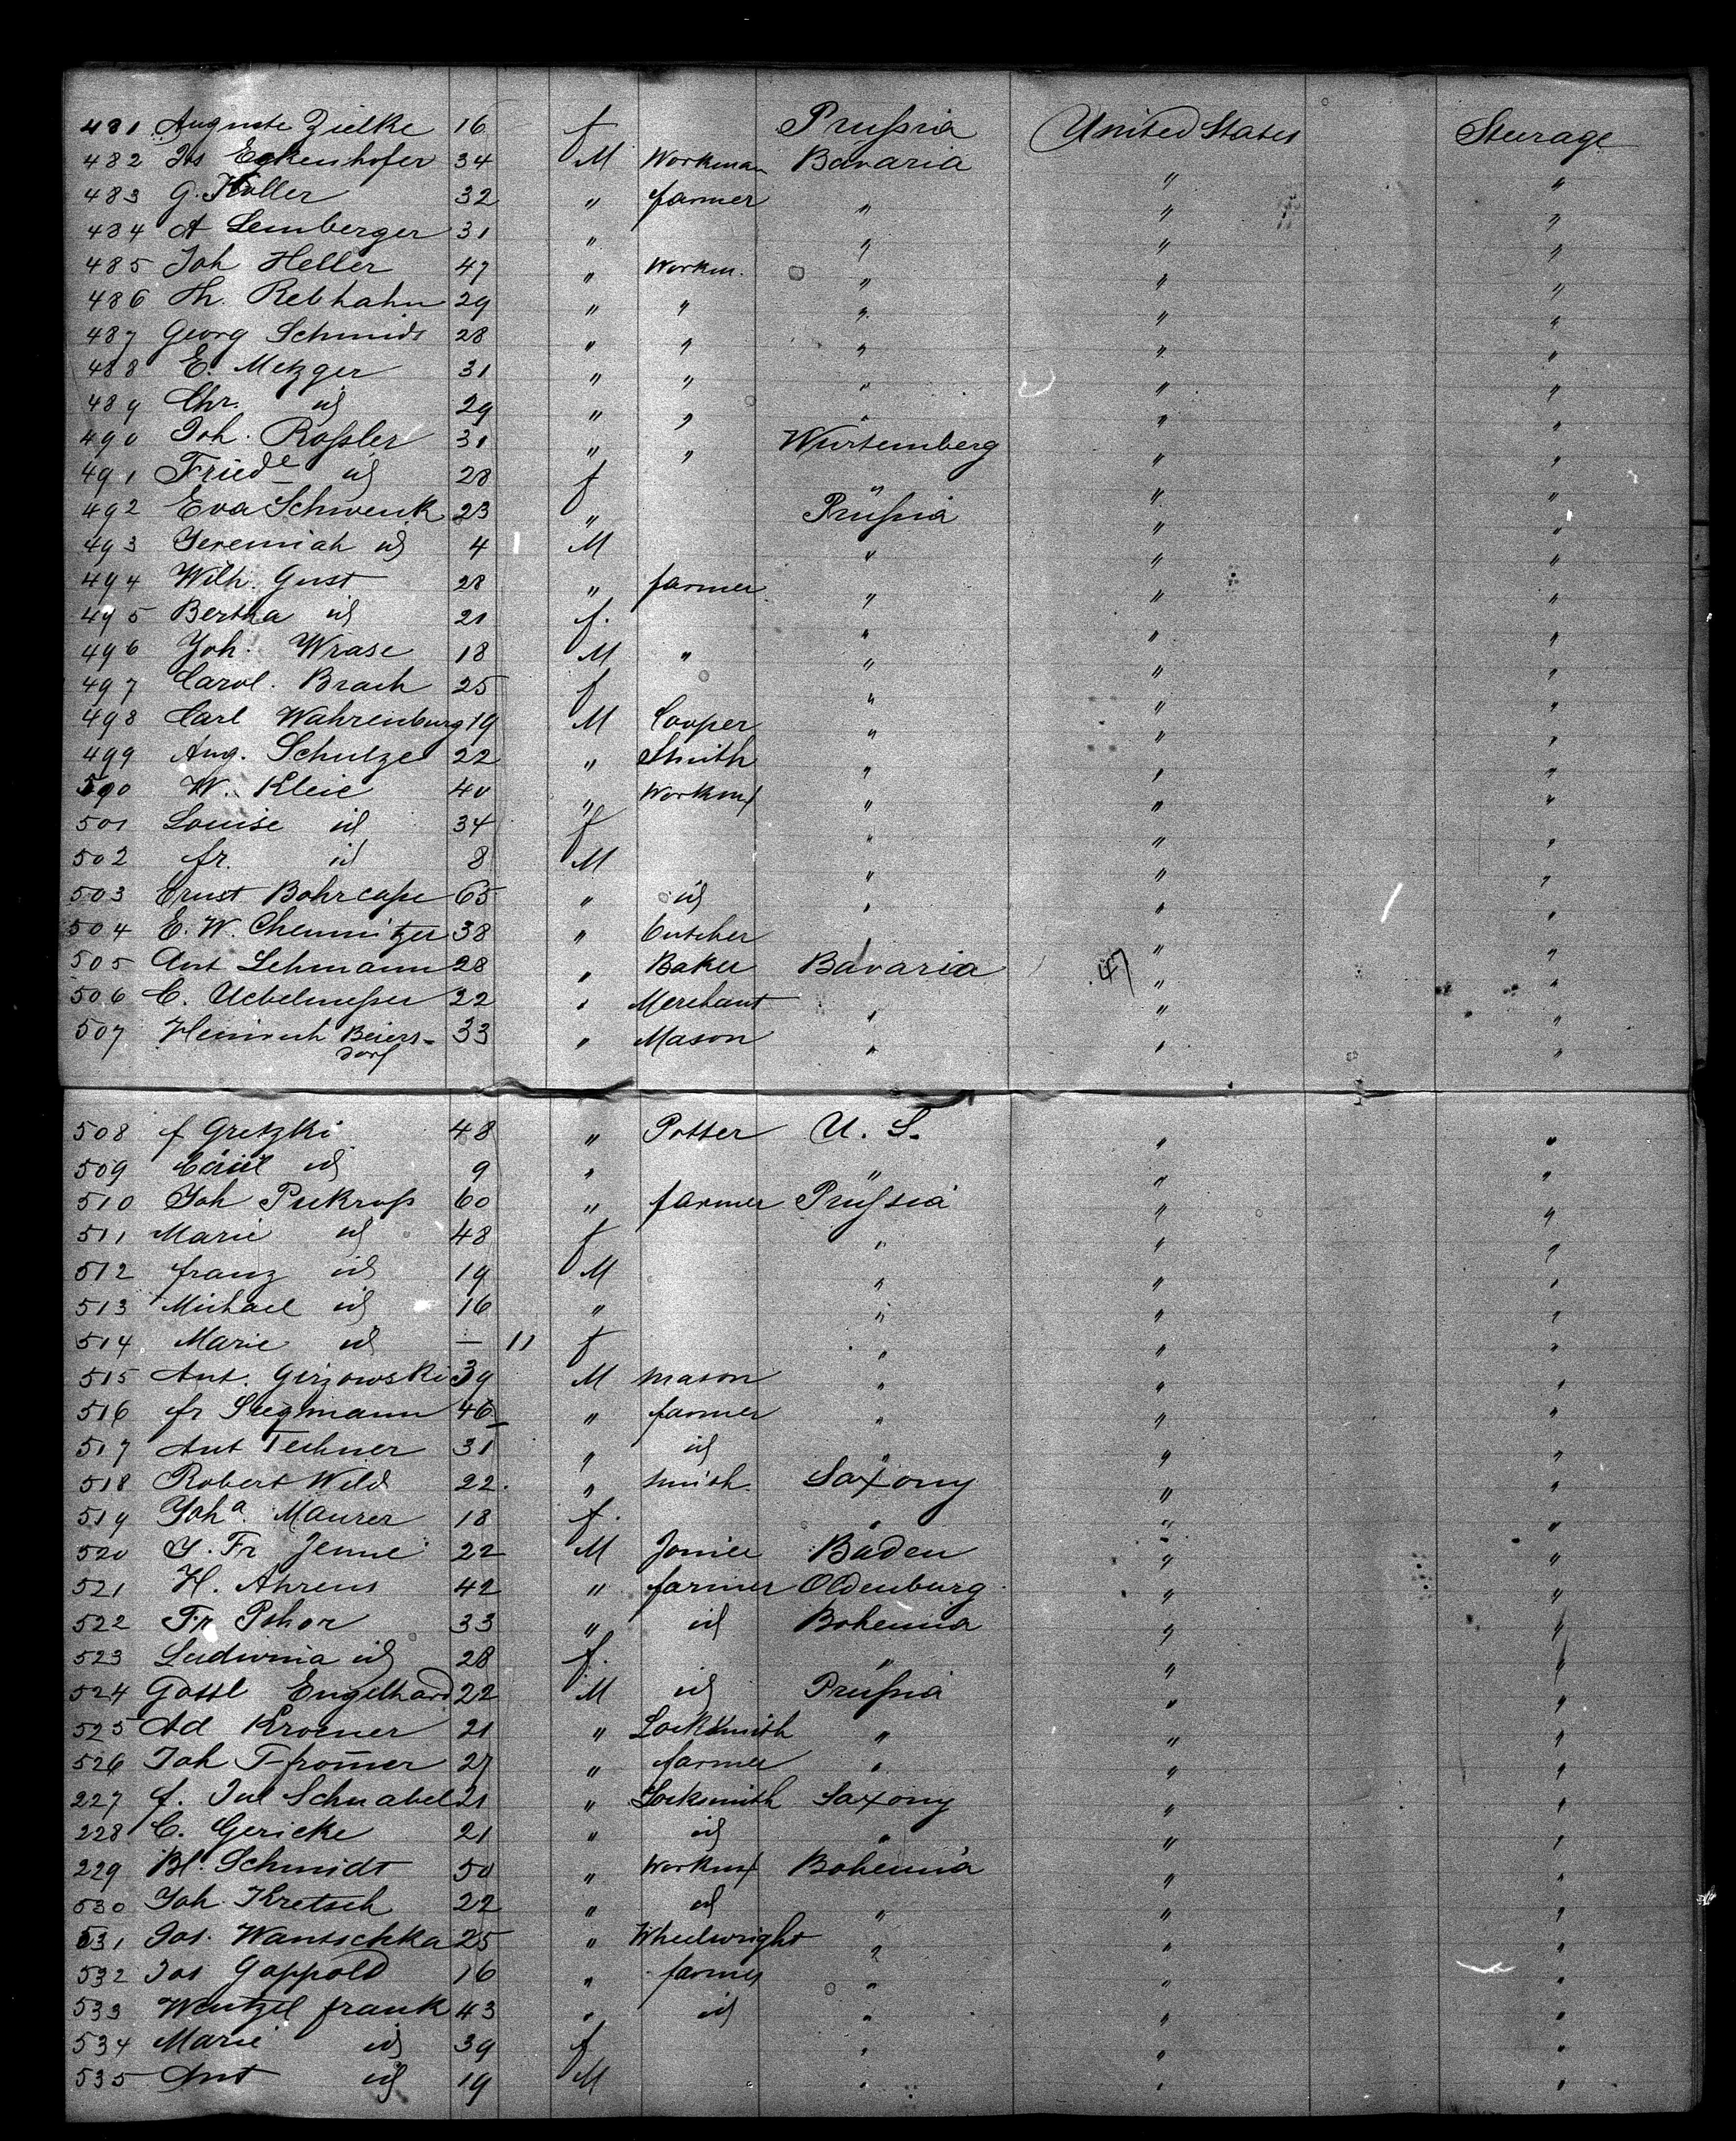 481 Auguste Zielke 16 f Prußia United States Steerage
482 Jos Eckenhofer 34 M Workman Bavaria " "
483 G. Koller 32 " farmer " " "
484 A Lemberger 31 " " " "
485 Joh Heller 47 " Workm. " " "
486 Th. Rebhahn 29 " " " " "
487 Georg Schmidt 28 " " " " "
488 E. Metzger 31 " " " " "
489 Chr. id 29 " " " " "
490 Joh. Roßler 31 " " Wurtemberg " "
491 Fried^e id 28 f " " "
492 Eva Schwenk 23 " Prußia " "
493 Jeremiah id 4 M " " "
494 Wilh. Gust 28 " farmer " " "
495 Bertha id 21 f. " " "
496 Joh. Wrase 18 M " " " "
497 Carol. Brach 25 f " " "
498 Carl Wahrenburg 19 M Cooper " " "
499 Aug. Schulze 22 " Smith " " "
500 W. Kleie 40 " Workm " " "
501 Louise id 34 f " " "
502 fr. id 8 M " " "
503 Ernst 65 " id " " "
504 E. W. Chemnitzer 38 " Butcher " " "
505 Ant Lehmann 28 " Baker Bavaria 47 " "
506 C. Uebelmeßer 22 " Merchant " " "
507 Heinrich Beiers- 33 " Mason " " "
dorf
508 f Gretzki 48 " Potter U. S. " "
509 id 9 " " " "
510 Joh Piekroß 60 " farmer Prußia " "
511 Marie id 48 f " " "
512 franz id 19 M " " "
513 Michael id 16 " " " "
514 Marie id — 11 f " " "
515 Ant. Girzowski 39 M mason " " "
516 fr Siegmann 46 " farmer " " "
517 Ant Techner 31 " id " " "
518 Robert Wild 22. " smith Saxony " "
519 Joh^a. Maurer 18 f. " " "
520 J. Fr Jenne 22 M Joiner Baden " "
521 H. Ahrens 42 " farmer Oldenburg " "
522 Fr Pohor 33 " id Bohemia " "
523 Ludwina id 28 f. " " "
524 Gottl Engelhard 22 M id Prußia " "
525 Ad Kromer 21 " Locksmith " " "
526 Joh 27 " farmer " " "
227 f. Jul Schnabel 21 " Locksmith Saxony " "
228 C. Gericke 21 " id " " "
229 Bl. Schmidt 50 " Workm Bohemia " "
530 Joh Kretsch 22 " id " " "
531 Jos. Wantschka 25 " Wheelwright " " "
532 Jos Goppold 16 " farmer " " "
533 Wentzel frank 43 " id " " "
534 Marie id 39 f " " "
535 Ant id 19 M " " "